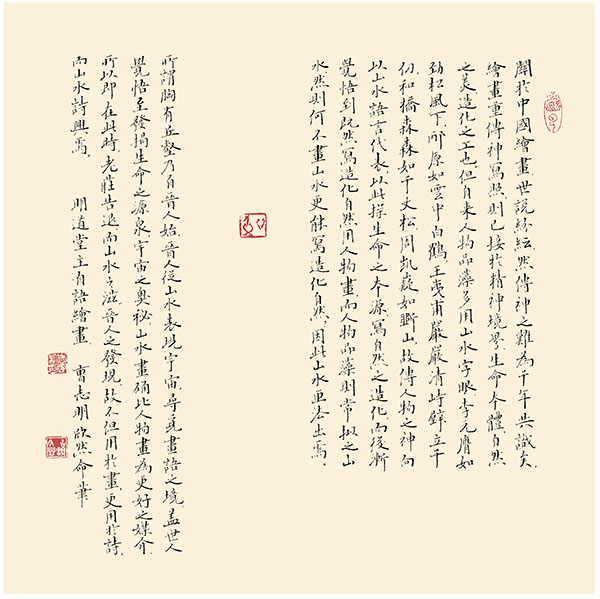 關於中國繪畫世說紛紜然傳神之難為千年共識矣
繪畫重傳神寫照則已接於精神境界生命本體自然
之美造化之工也但自來人物品藻多用山水字眼李元膺如
勁松風下邴原如雲中白鶴王夷甫巖巖清峙壁立千
仞和橋森森如千丈松周凱嶷如斷山故傳人物之神向
以山水語言代表以此探生命之本源寫自然之造化而後漸
覺悟到既然寫造化自然用人物畫而人物品藻則常擬之山
水然則何不畫山水更能寫造化自然因此山水畫法出焉
所謂胸有丘壑乃自晉人始晉人從山水表現宇宙尋覓畫語之境蓋世人
覺悟至發揭生命之源泉宇宙之奧秘山水畫确比人物畫為更好之媒介
所以即在此時老莊告退而山水之滋晉人之發現故不但用於畫更用於詩
而山水詩興焉 明道堂主自語繪畫 曹志明欣然命筆